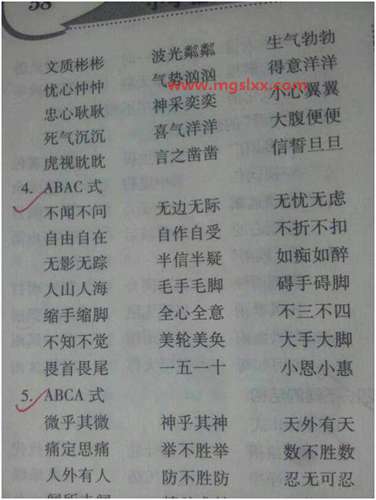 58
文质彬彬 波光粼粼 生气勃勃
忧心忡忡 气势汹汹 得意洋洋
www.mgslxx.com
忠心耿耿 神采奕奕 小心翼翼
死气沉沉 喜气洋洋 大腹便便
虎视眈眈 言之凿凿 信誓旦旦
4. ABAC 式
不闻不问 无边无际 无忧无虑
自由自在 自作自受 不折不扣
无影无踪 半信半疑 如痴如醉
人山人海 毛手毛脚 碍手碍脚
缩手缩脚 全心全意 不三不四
不知不觉 美轮美奂 大手大脚
畏首畏尾 一五一十 小恩小惠
5. ABCA 式
微乎其微 神乎其神 天外有天
痛定思痛 举不胜举 数不胜数
人外有人 防不胜防 忍无可忍